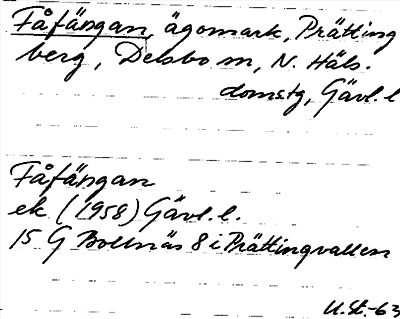 Fåfängan, ägomark, Prätting
berg, Delsbo sn, N. Häls.
doms.tg, Gävl. l
Fåfängan
ek (1958) Gävl. l.
15 G Bollnäs 8 i Prättingvallen
U.St.-63